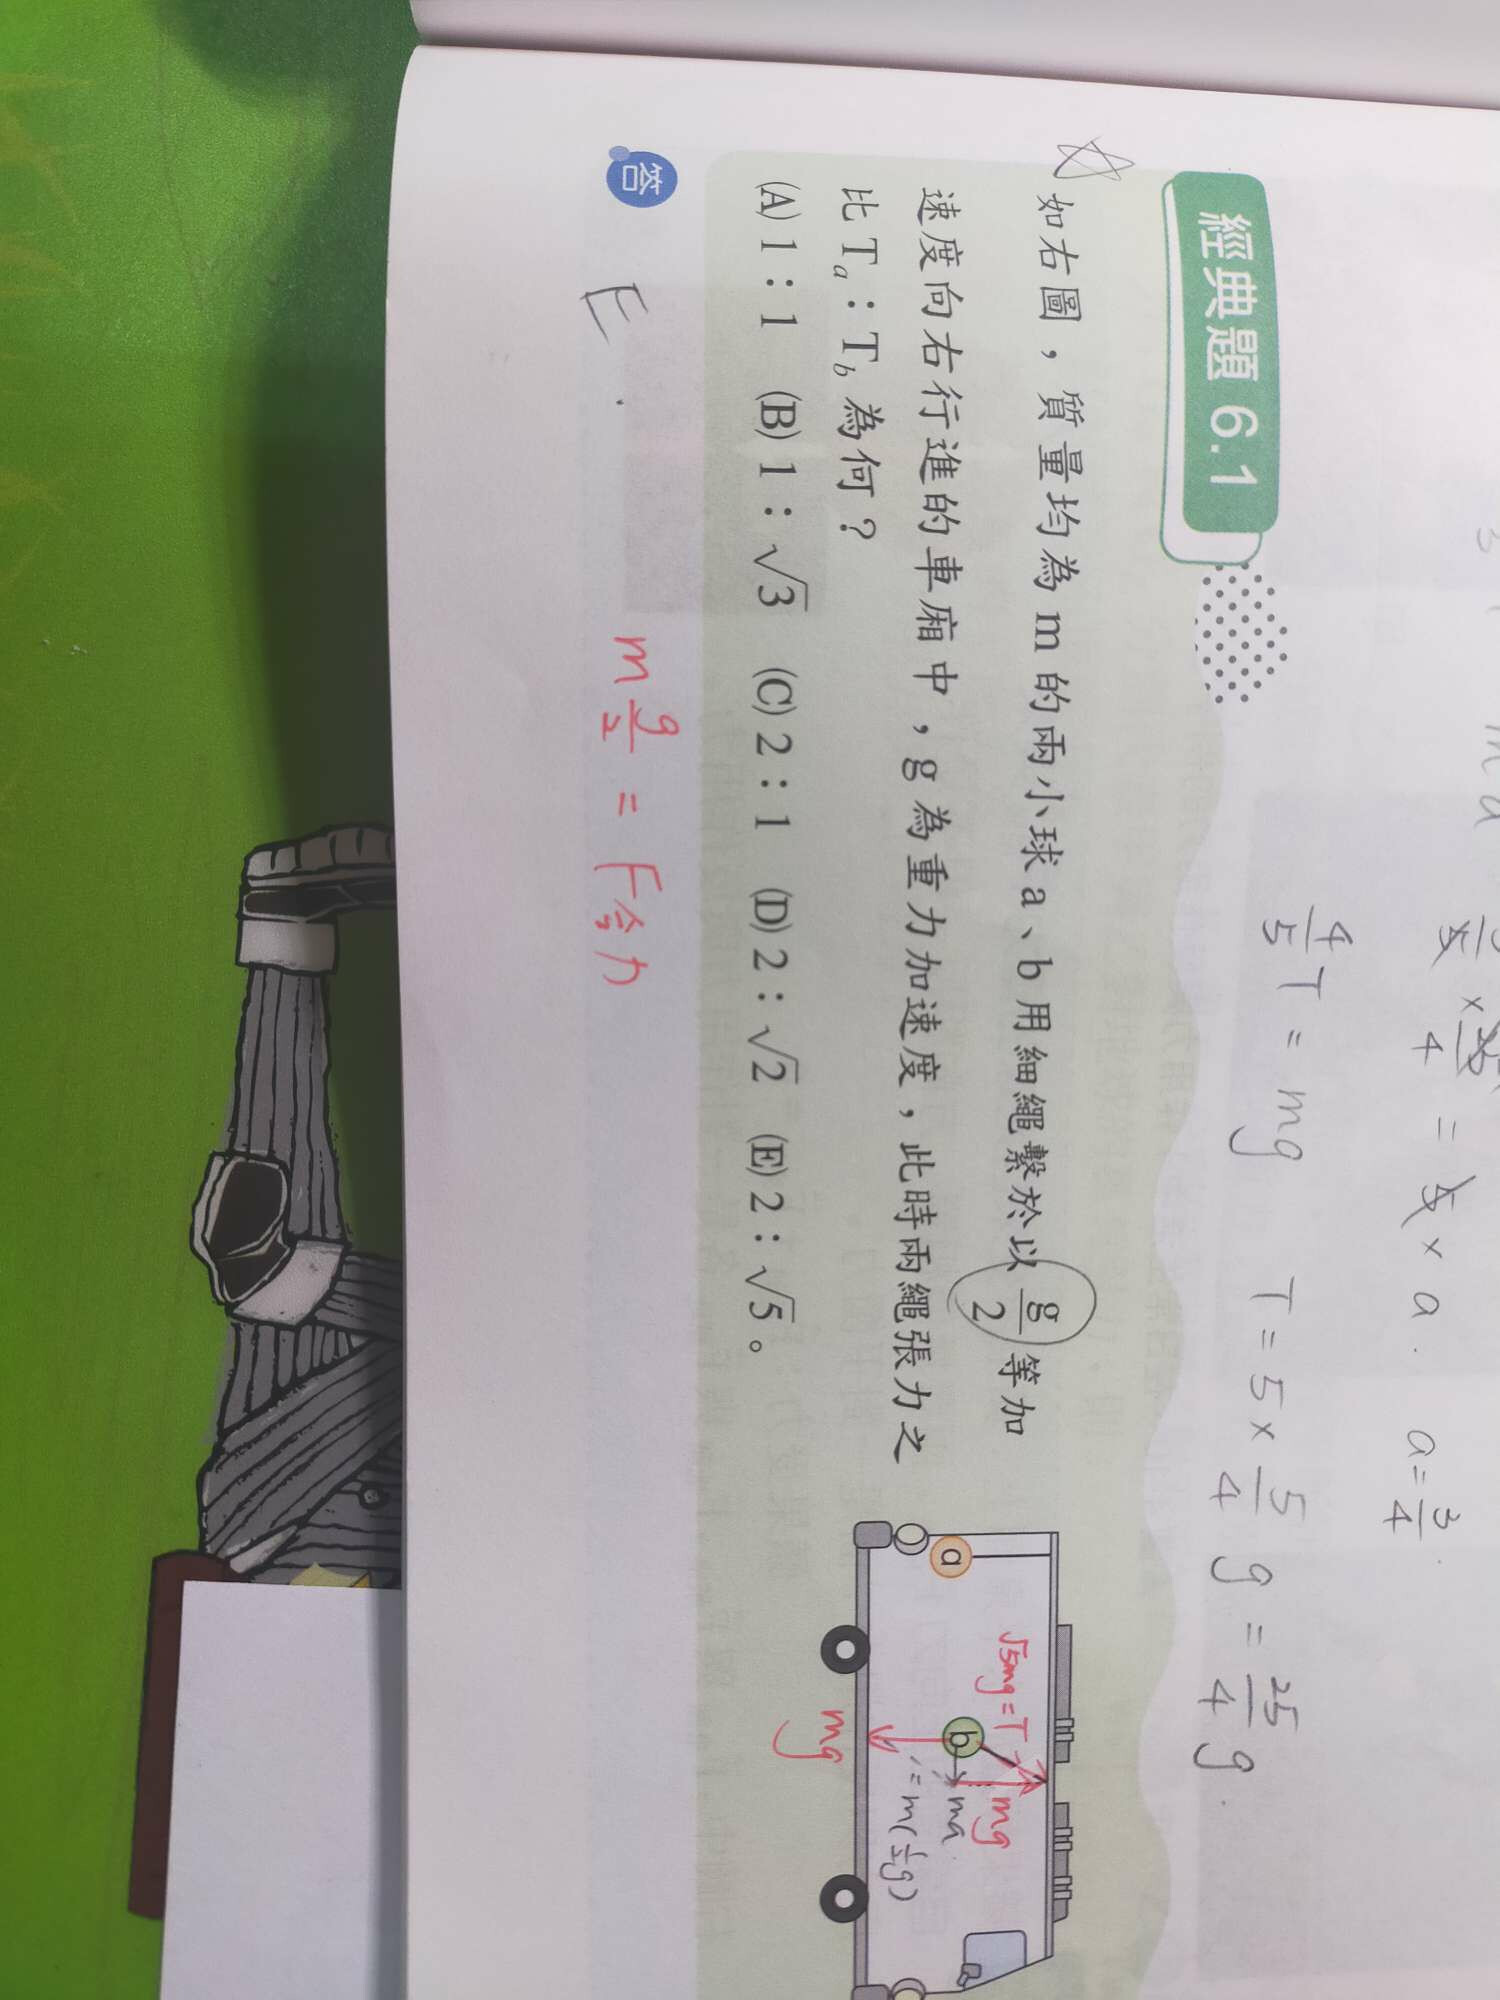 ma
4/5 T = mg T = 5 × 5/4 g = 25/4 g.
= 5 × a. a = 3/4.
經典題 6.1
如右圖，質量均為 m 的兩小球 a、b 用細繩繫於以 g/2 等加
速度向右行進的車廂中，g 為重力加速度，此時兩繩張力之
比 Tₐ：T_b 為何？
(A) 1：1 (B) 1：√3 (C) 2：1 (D) 2：√2 (E) 2：√5。
a
b
√5mg=T
mg
ma
=m(½g)
mg
答
E.
m g/2 = F合力